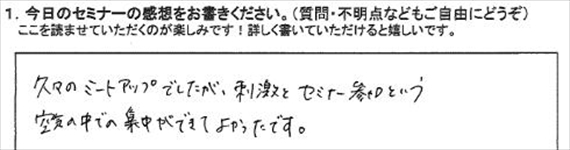 1. 今日のセミナーの感想をお書きください。（質問・不明点などもご自由にどうぞ）
ここを読ませていただくのが楽しみです！詳しく書いていただけると嬉しいです。
久々のミートアップでしたが、刺激とセミナー参加という
空気の中での集中ができてよかったです。